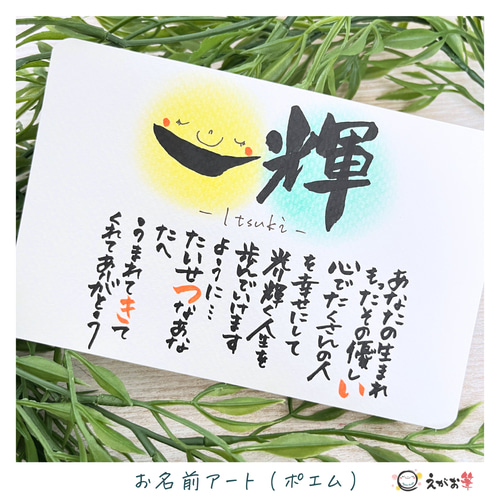 一輝
- Itsuki -
あなたの生まれ
もったその優しい
心でたくさんの人
を幸せにして
光り輝く人生を
歩んでいけます
ように…
たいせつなあな
たへ
うまれてきて
くれてありがとう
お名前アート(ポエム)
えがお筆